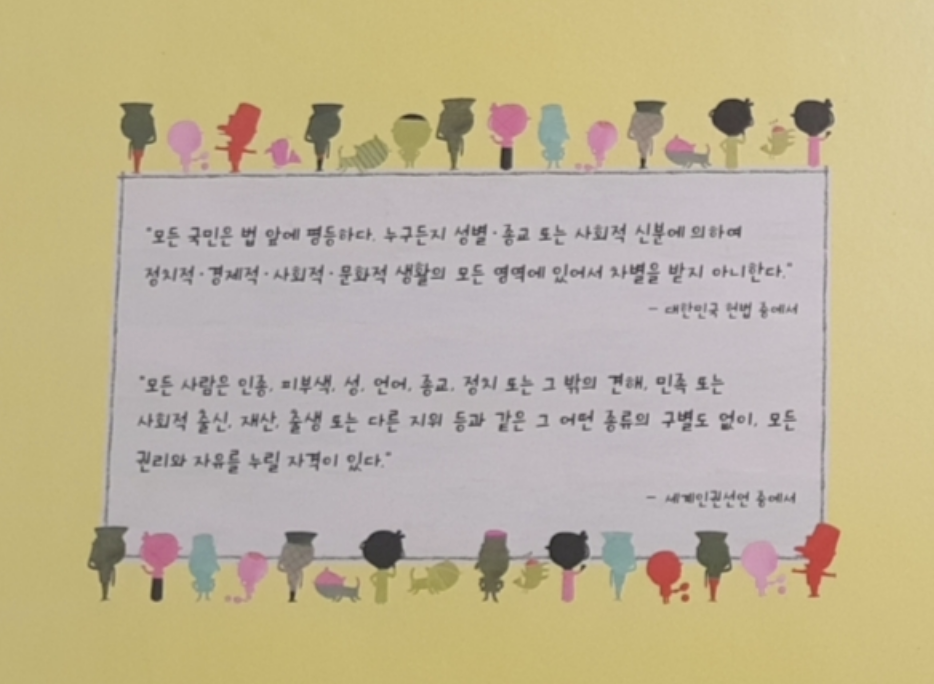 "모든 국민은 법 앞에 평등하다. 누구든지 성별·종교 또는 사회적 신분에 의하여
정치적·경제적·사회적·문화적 생활의 모든 영역에 있어서 차별을 받지 아니한다."
- 대한민국 헌법 중에서
"모든 사람은 인종, 피부색, 성, 언어, 종교, 정치 또는 그 밖의 견해, 민족 또는
사회적 출신, 재산, 출생 또는 다른 지위 등과 같은 그 어떤 종류의 구별도 없이, 모든
권리와 자유를 누릴 자격이 있다."
- 세계인권선언 중에서